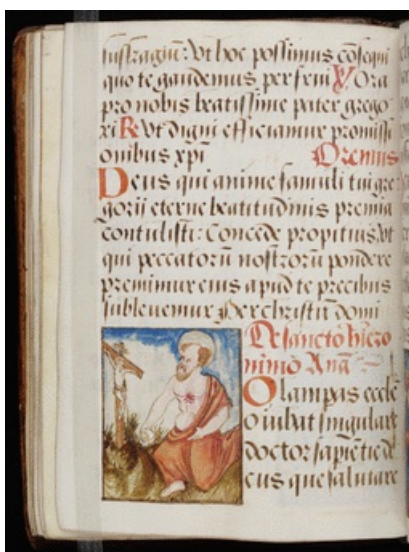 suffragiū: Vt hoc possimus cōsequi
quo te gaudemus perfrui V Ora
pro nobis beatissime pater grego
ri R Vt digni efficiamur promissi
onibus xpi Oremus
Deus qui anime famuli tui gre
gorij eterne beatitudinis premia
contulisti: Concede propitius Vt
qui peccatorū nostrorū pondere
premimur eius apud te precibus
subleuemur Per christū domi
De sancto hiero
nimo Anā
O lampas eccle
o iubar singulare
doctor sapiētie d
eus que salutare